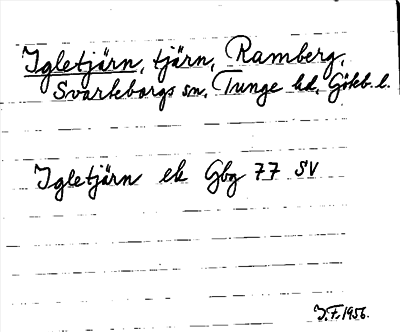 Igletjärn, tjärn, Ramberg,
Svarteborgs sn, Tunge hd, Göteb. l.
Igletjärn ek Gbg 77 SV
J.F. 1956.